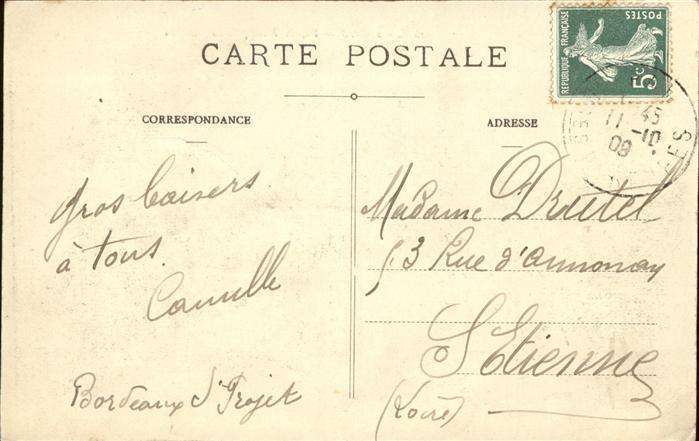 CARTE POSTALE
CORRESPONDANCE
ADRESSE
REPUBLIQUE FRANÇAISE
POSTES
5c
11 45
-10
09
Gros baisers
à tous.
Camille
Bordeaux
Madame Drutel
53 Rue d'Annonay
St Etienne
(Loire)